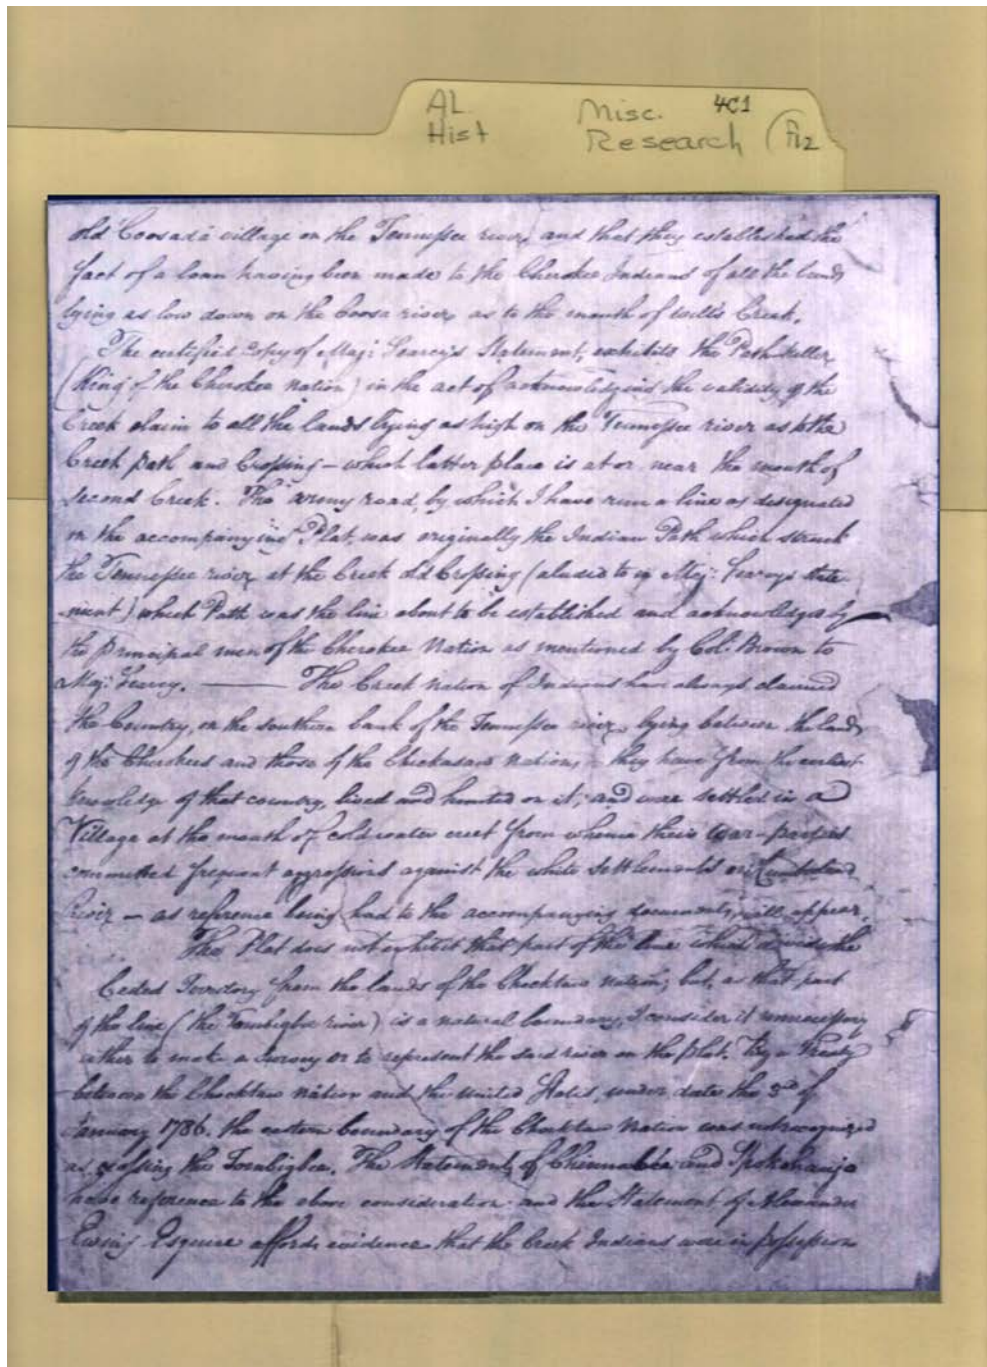 AL Misc. 4C1
Hist Research
old Coosada village on the Tennessee river, and that they established the
fact of a loan having been made to the Cherokee Indians of all the lands
lying as low down on the Coosa river, as to the mouth of Will's Creek.
The certified copy of Maj: Searcy's Statement, exhibits the Path Killer
(King of the Cherokee Nation) in the act of acknowledging the validity of the
Creek claim to all the lands lying as high on the Tennessee river as to the
Creek Path and Crossing – which latter place is at or near the mouth of
Second Creek. The army road, by which I have run a line as designated
on the accompanying Plat, was originally the Indian Path which struck
the Tennessee river at the Creek old Crossing (aluded to in Maj: Searcy's State
ment) which Path was the line about to be established and acknowledged by
the principal men of the Cherokee Nation as mentioned by Col. Brown to
Maj: Searcy. —— The Creek Nation of Indians have always claimed
the Country, on the southern bank of the Tennessee river, lying between the lands
of the Cherokees and those of the Chickasaw Nation, – they have from the earliest
knowledge of that country, lived and hunted on it; and were settled in a
Village at the mouth of cold water creek from whence their war-parties
committed frequent aggressions against the white Settlements on Cumberland
River – as reference being had to the accompanying documents, will appear.
The Plat does not exhibit that part of the line which divides the
Ceded Territory from the lands of the Chocktaw Nation; but, as that part
of the line (the Tombigbee river) is a natural boundary, I consider it unnecessary
either to make a Survey or to represent the said river on the plat. By a Treaty
between the Chocktaw Nation and the United States, under date the 3rd of
January 1786. the eastern boundary of the Chocktaw Nation was not recognized
as crossing the Tombigbee. The Statements of Chinnabee and
have reference to the above consideration and the Statement of Alexander
Ewing Esquire affords evidence that the Creek Indians were in possession